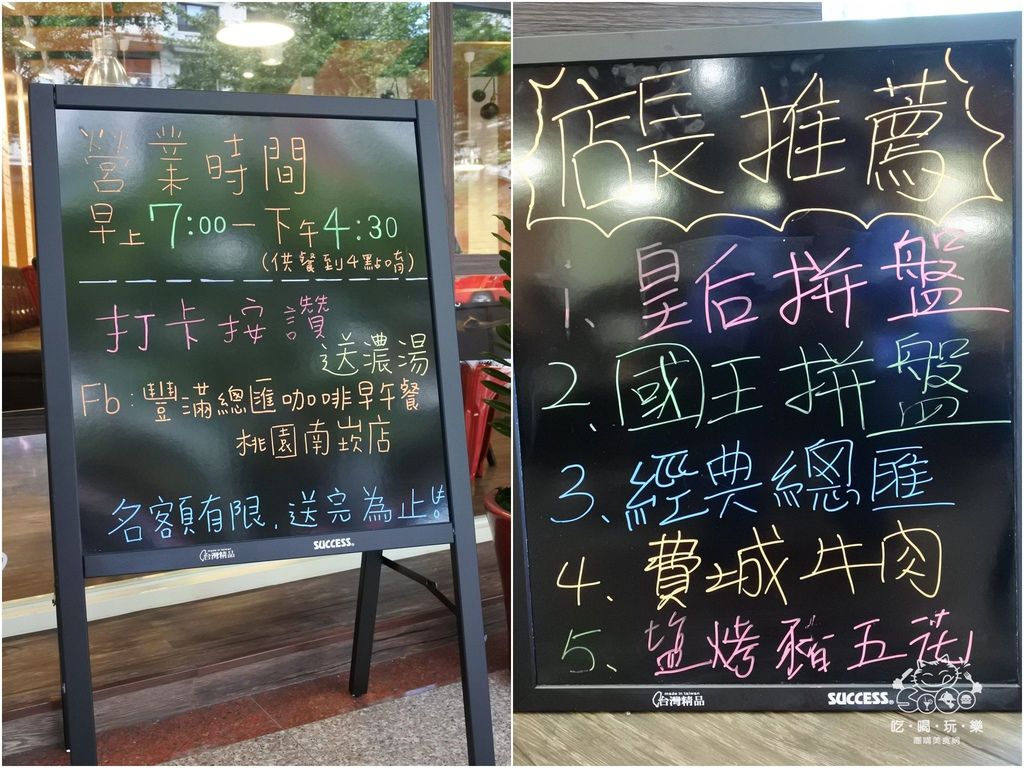 營業時間
早上7:00－下午4:30
(供餐到4點唷)
打卡按讚
送濃湯
Fb：豐滿總匯咖啡早午餐
桃園南崁店
名額有限，送完為止!!
made in taiwan
台灣精品
SUCCESS®
店長推薦
1、皇后拼盤
2、國王拼盤
3、經典總匯
4、費城牛肉
5、塩烤豬五花
made in taiwan
台灣精品
SUCCESS®
吃·喝·玩·樂
團購美食網